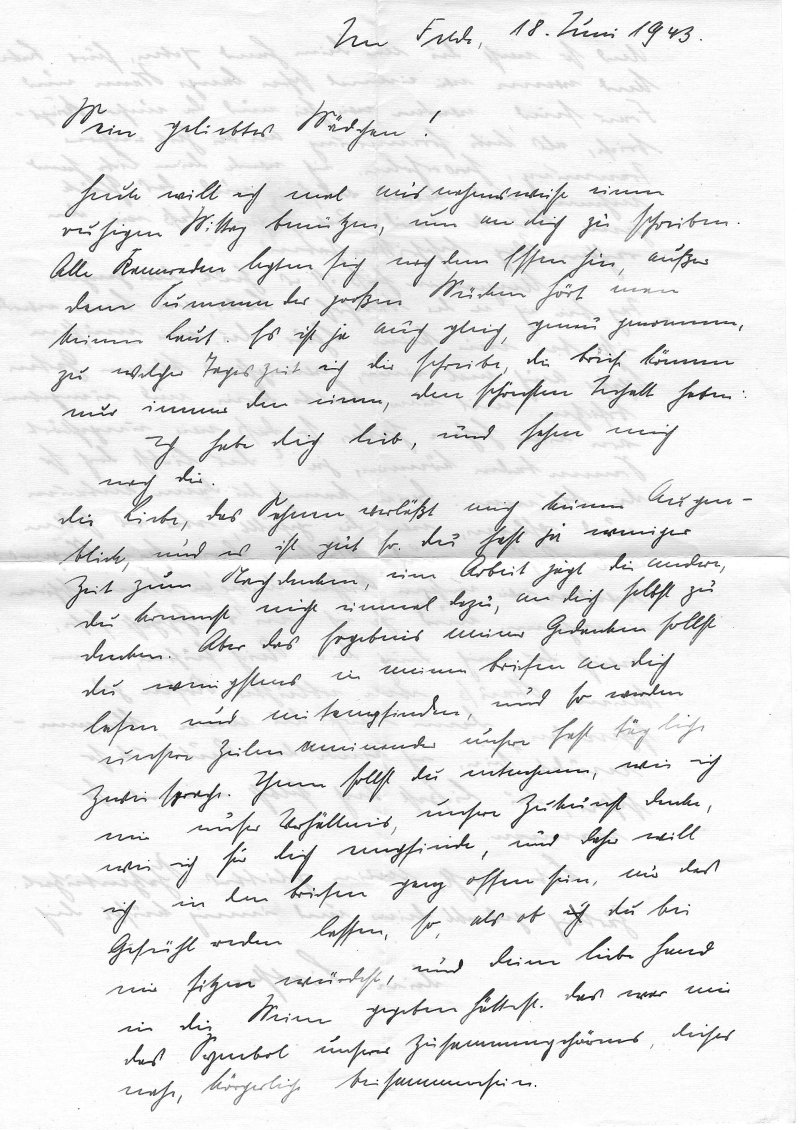 Im Felde, 18. Juni 1943.
Mein geliebtes Mädchen!
Heute will ich mal ausnahmsweise einen
ruhigen Mittag benützen, um an dich zu schreiben.
Alle Kameraden legten sich nach dem Essen hin, außer
dem Summen der großen Mücken hört man
keinen Laut. Es ist ja auch gleich, genau genommen,
zu welcher Tageszeit ich dir schreibe, die Briefe können
nur immer den einen, den schönsten Inhalt haben:
Ich habe dich lieb, und sehne mich
nach dir.
Die Liebe, das Sehnen verläßt mich keinen Augen-
blick, und es ist gut so. Du hast ja weniger
Zeit zum Nachdenken, eine Arbeit jagt die andere,
du kommst nicht einmal dazu, an dich selbst zu
denken. Aber das Ergebnis meiner Gedanken sollst
du wenigstens in meinen Briefen an dich
lesen und mitempfinden, und so werden
unsere Zeilen aneinander unsere fast tägliche
Zwiesprache. Ihnen sollst du entnehmen, wie ich
mir unser Verhältnis, unsere Zukunft denke,
wie ich für dich empfinde, und daher will
ich in den Briefen ganz offen sein, nur das
Gefühl reden lassen, so, als ob du bei
mir sitzen würdest, und deine liebe Hand
in die Meine gegeben hättest. Das war mir
das Symbol unseres Zusammengehörens, dieses
nahe, körperliche Beisammensein.